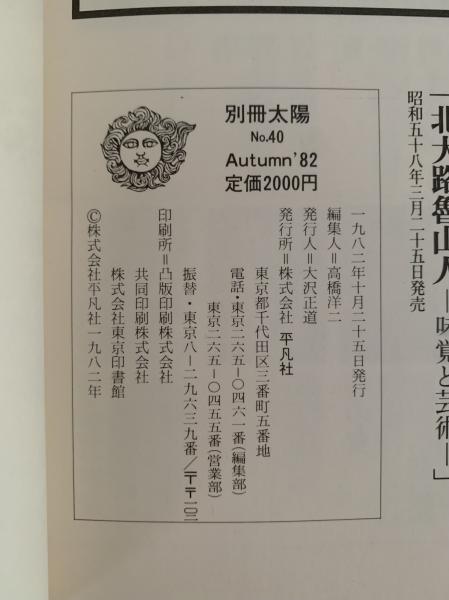 「北大路魯山人―味覚と芸術―」
昭和五十八年三月二十五日発売
別冊太陽
No.40
Autumn'82
定価2000円
一九八二年十月二十五日発行
編集人＝高橋洋二
発行人＝大沢正道
発行所＝株式会社 平凡社
東京都千代田区三番町五番地
電話・東京二六五―〇四六一番(編集部)
東京二六五―〇四五五番(営業部)
振替・東京八―二九六三九番／〒一〇二
印刷所＝凸版印刷株式会社
共同印刷株式会社
株式会社東京印書館
©株式会社平凡社一九八二年